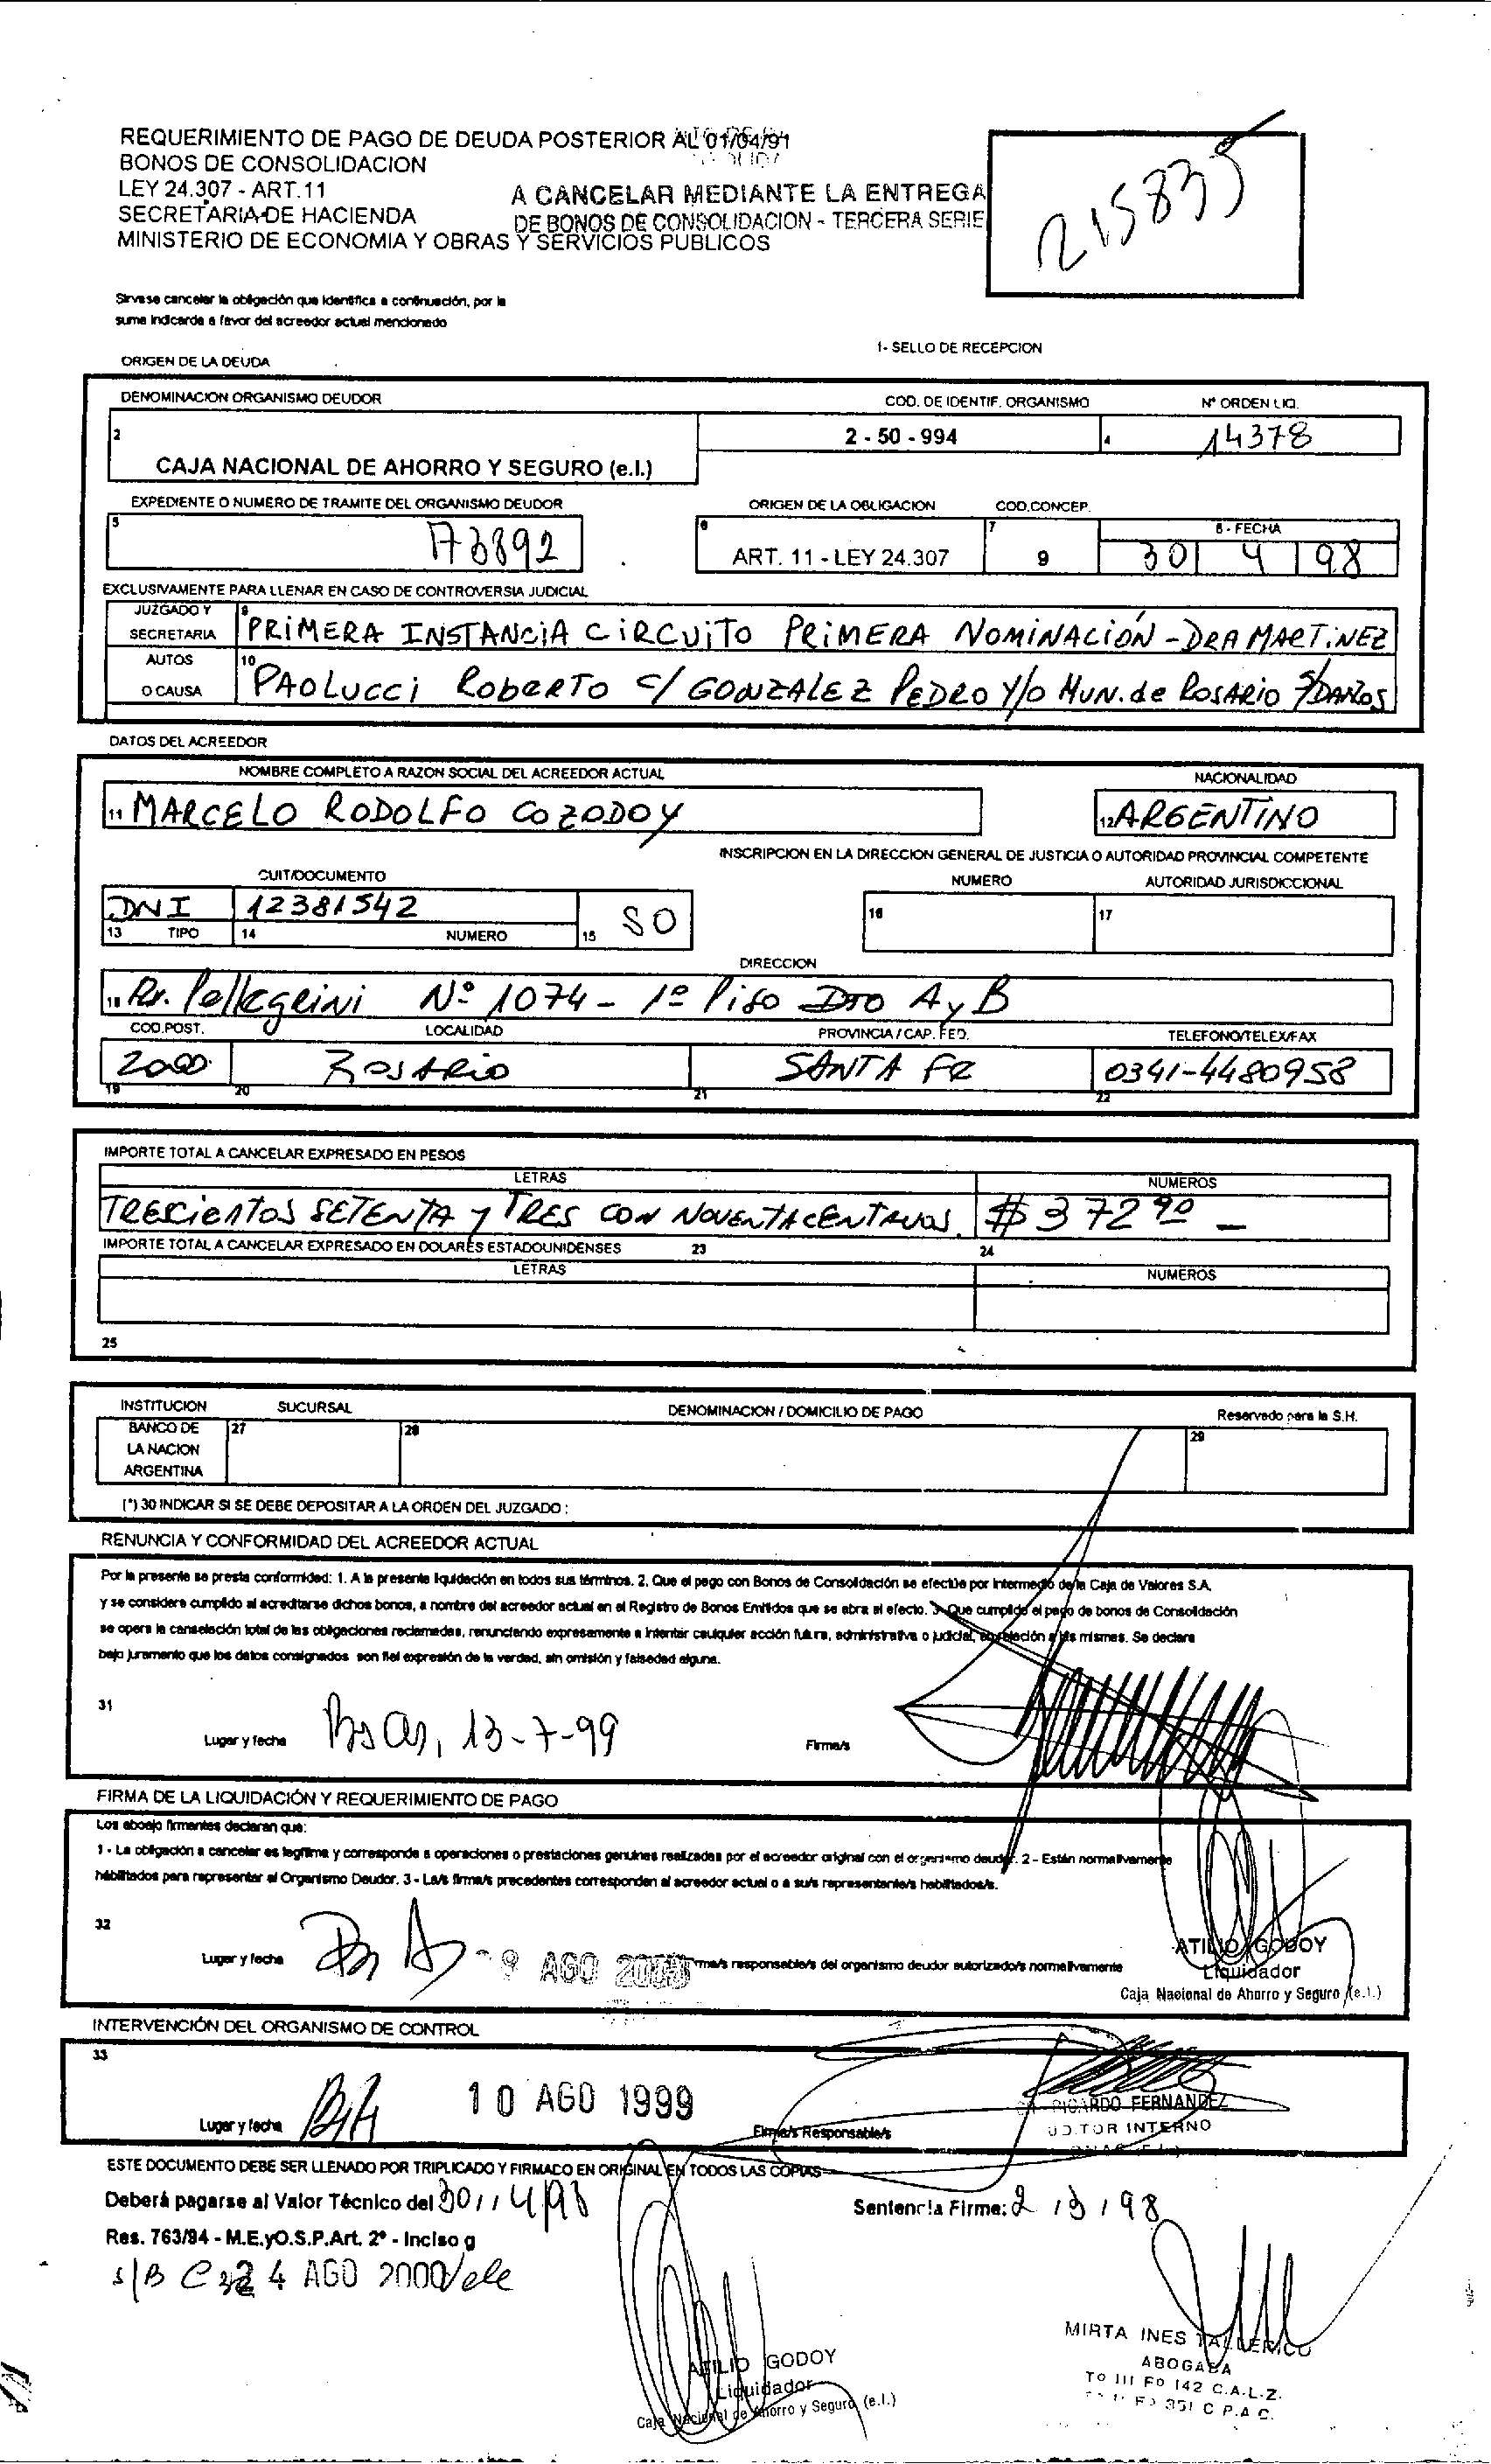 REQUERIMIENTO DE PAGO DE DEUDA POSTERIOR AL 01/04/91
BONOS DE CONSOLIDACION
LEY 24.307 - ART.11
A CANCELAR MEDIANTE LA ENTREGA
SECRETARIA DE HACIENDA
DE BONOS DE CONSOLIDACION - TERCERA SERIE
MINISTERIO DE ECONOMIA Y OBRAS Y SERVICIOS PUBLICOS
215835
Sirvase cancelar la obligación que identifica a continuación, por la
suma indicarda a favor del acreedor actual mencionado
1- SELLO DE RECEPCION
ORIGEN DE LA DEUDA
DENOMINACION ORGANISMO DEUDOR
COD. DE IDENTIF. ORGANISMO
Nº ORDEN LIQ.
2
2 - 50 - 994
4
14378
CAJA NACIONAL DE AHORRO Y SEGURO (e.l.)
EXPEDIENTE O NUMERO DE TRAMITE DEL ORGANISMO DEUDOR
ORIGEN DE LA OBLIGACION
COD.CONCEP.
5
73892
6
ART. 11 - LEY 24.307
7
9
8 - FECHA
30 4 98
EXCLUSIVAMENTE PARA LLENAR EN CASO DE CONTROVERSIA JUDICIAL
JUZGADO Y
SECRETARIA
9
PRIMERA INSTANCIA CIRCUITO PRIMERA NOMINACIÓN - DRA MARTINEZ
AUTOS
O CAUSA
10
PAOLUCCI ROBERTO C/ GONZALEZ PEDRO Y/O MUN. de ROSARIO S/DAÑOS
DATOS DEL ACREEDOR
NOMBRE COMPLETO A RAZON SOCIAL DEL ACREEDOR ACTUAL
NACIONALIDAD
11 MARCELO RODOLFO COZODOY
12 ARGENTINO
INSCRIPCION EN LA DIRECCION GENERAL DE JUSTICIA O AUTORIDAD PROVINCIAL COMPETENTE
CUIT/DOCUMENTO
NUMERO
AUTORIDAD JURISDICCIONAL
DNI 12381542
SO
16
17
13 TIPO 14 NUMERO 15
DIRECCION
18 Av. Pellegrini Nº 1074 - 1º Piso DTO A y B
COD.POST.
LOCALIDAD
PROVINCIA / CAP. FED.
TELEFONO/TELEX/FAX
2000
ROSARIO
SANTA FE
0341-4480958
19 20 21 22
IMPORTE TOTAL A CANCELAR EXPRESADO EN PESOS
LETRAS
NUMEROS
TRESCIENTOS SETENTA Y TRES CON NOVENTA CENTAVOS.
$ 372 90 -
IMPORTE TOTAL A CANCELAR EXPRESADO EN DOLARES ESTADOUNIDENSES
23
24
LETRAS
NUMEROS
25
INSTITUCION
SUCURSAL
DENOMINACION / DOMICILIO DE PAGO
Reservado para la S.H.
BANCO DE
LA NACION
ARGENTINA
27
28
29
(*) 30 INDICAR SI SE DEBE DEPOSITAR A LA ORDEN DEL JUZGADO :
RENUNCIA Y CONFORMIDAD DEL ACREEDOR ACTUAL
Por la presente se presta conformidad: 1. A la presente liquidación en todos sus términos. 2. Que el pago con Bonos de Consolidación se efectúe por intermedio de la Caja de Valores S.A.
y se considere cumplido al acreditarse dichos bonos, a nombre del acreedor actual en el Registro de Bonos Emitidos que se abra al efecto. 3- Que cumplido el pago de bonos de Consolidación
se opera la canselación total de las obligaciones reclamadas, renunciando expresamente a intentar caulquier acción futura, administrativa o judicial, en relación a las mismas. Se declara
bajo juramento que los datos consignados son fiel expresión de la verdad, sin omisión y falsedad alguna.
31
Lugar y fecha
Bs As, 13-7-99
Firma/s
FIRMA DE LA LIQUIDACIÓN Y REQUERIMIENTO DE PAGO
Los aboajo firmantes declaran que:
1 - La obligación a cancelar es legítima y corresponde a operaciones o prestaciones genuines realizadas por el acreedor original con el organismo deudor. 2 - Están normativamente
habilitados para representar al Organismo Deudor. 3 - La/s firma/s precedentes corresponden al acreedor actual o a su/s representante/s habilitado/s.
32
Lugar y fecha
Bs As
9 AGO 2000
Firma/s responsable/s del organismo deudor autorizado/s normativamente
ATILIO GODOY
Liquidador
Caja Nacional de Ahorro y Seguro (e.l.)
INTERVENCIÓN DEL ORGANISMO DE CONTROL
33
Lugar y fecha
10 AGO 1999
Firma/s Responsable/s
RICARDO FERNANDEZ
AUDITOR INTERNO
ESTE DOCUMENTO DEBE SER LLENADO POR TRIPLICADO Y FIRMADO EN ORIGINAL EN TODOS LAS COPIAS
Deberá pagarse al Valor Técnico del 30 / 4 / 98
Sentencia Firme: 2 / 3 / 98
Res. 763/94 - M.E.yO.S.P.Art. 2º - Inciso g
4 AGO 2000
ATILIO GODOY
Liquidador
Caja Nacional de Ahorro y Seguro (e.l.)
MIRTA INES TALLERICO
ABOGADA
Tº III Fº 142 C.A.L.Z.
Fº 351 C.P.A.C.